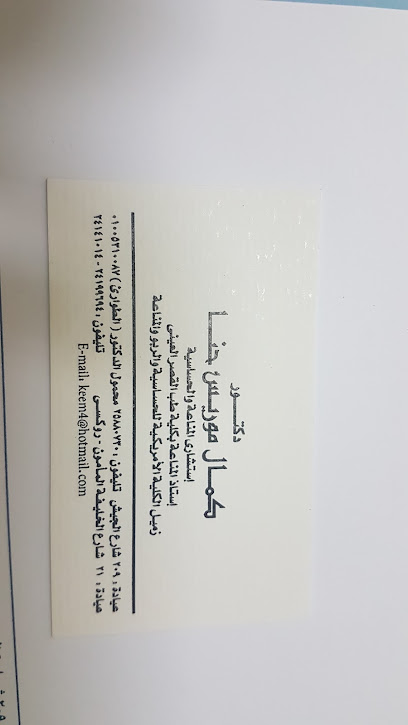 دكتـــور
كمـال موريـس حنــا
إستشارى المناعة والحساسية
إستاذ المناعة بكلية طب القصر العينى
زميل الكلية الأمريكية للحساسية والربو والمناعة
عيادة : ٢٠٩ شارع الجيش تليفون : ٢٥٨٨٠٧٣٠ محمول الدكتور ( الطوارئ ) ٠١٠٠٥٣١٠٠٨٧
عيادة : ٢١ شارع الخليفة المامون - روكسى تليفون : ٢٤١٩٩٦٩٤ - ٢٤١٤١٠١٤
E-mail: keem4@hotmail.com